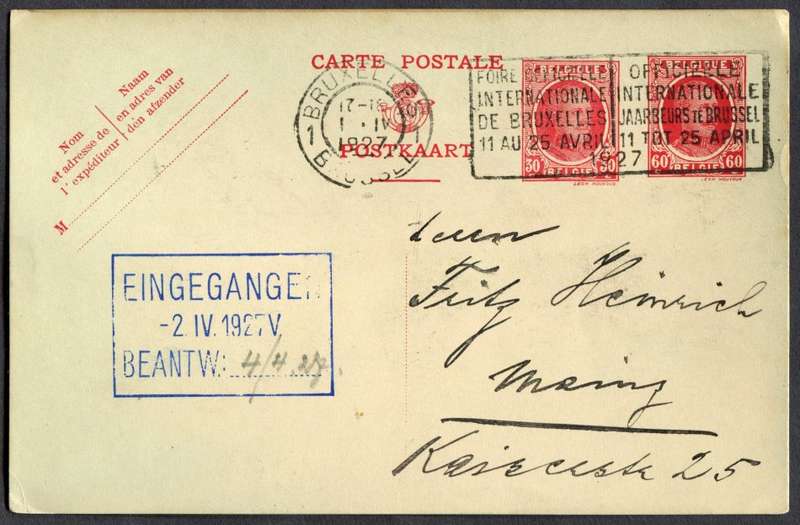 CARTE POSTALE
POSTKAART
Nom Naam
et adresse de en adres van
l'expéditeur den afzender
M
BRUXELLES
1 1927
BRUSSEL
FOIRE OFFICIELLE
INTERNATIONALE
DE BRUXELLES
11 AU 25 AVRIL
OFFICIELLE
INTERNATIONALE
JAARBEURS TE BRUSSEL
11 TOT 25 APRIL
1927
30 30
BELGIE
60 60
BELGIE
EINGEGANGEN
-2. IV. 1927 V
BEANTW: 4/4.27.
Herrn
Fritz Heinrich
Mainz
Kaiserstr 25